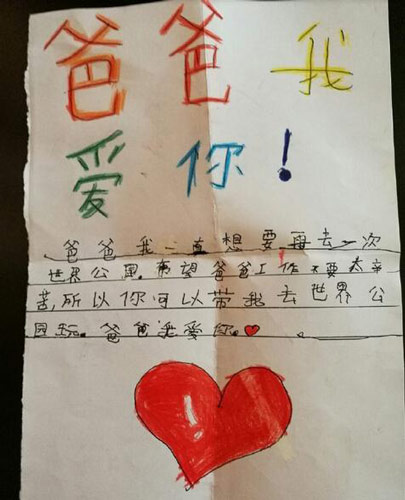 爸爸我
爱你！
爸爸我一直想要再去一次
世界公园。希望爸爸工作不要太辛
苦,所以你可以带我去世界公
园玩。爸爸我爱你。